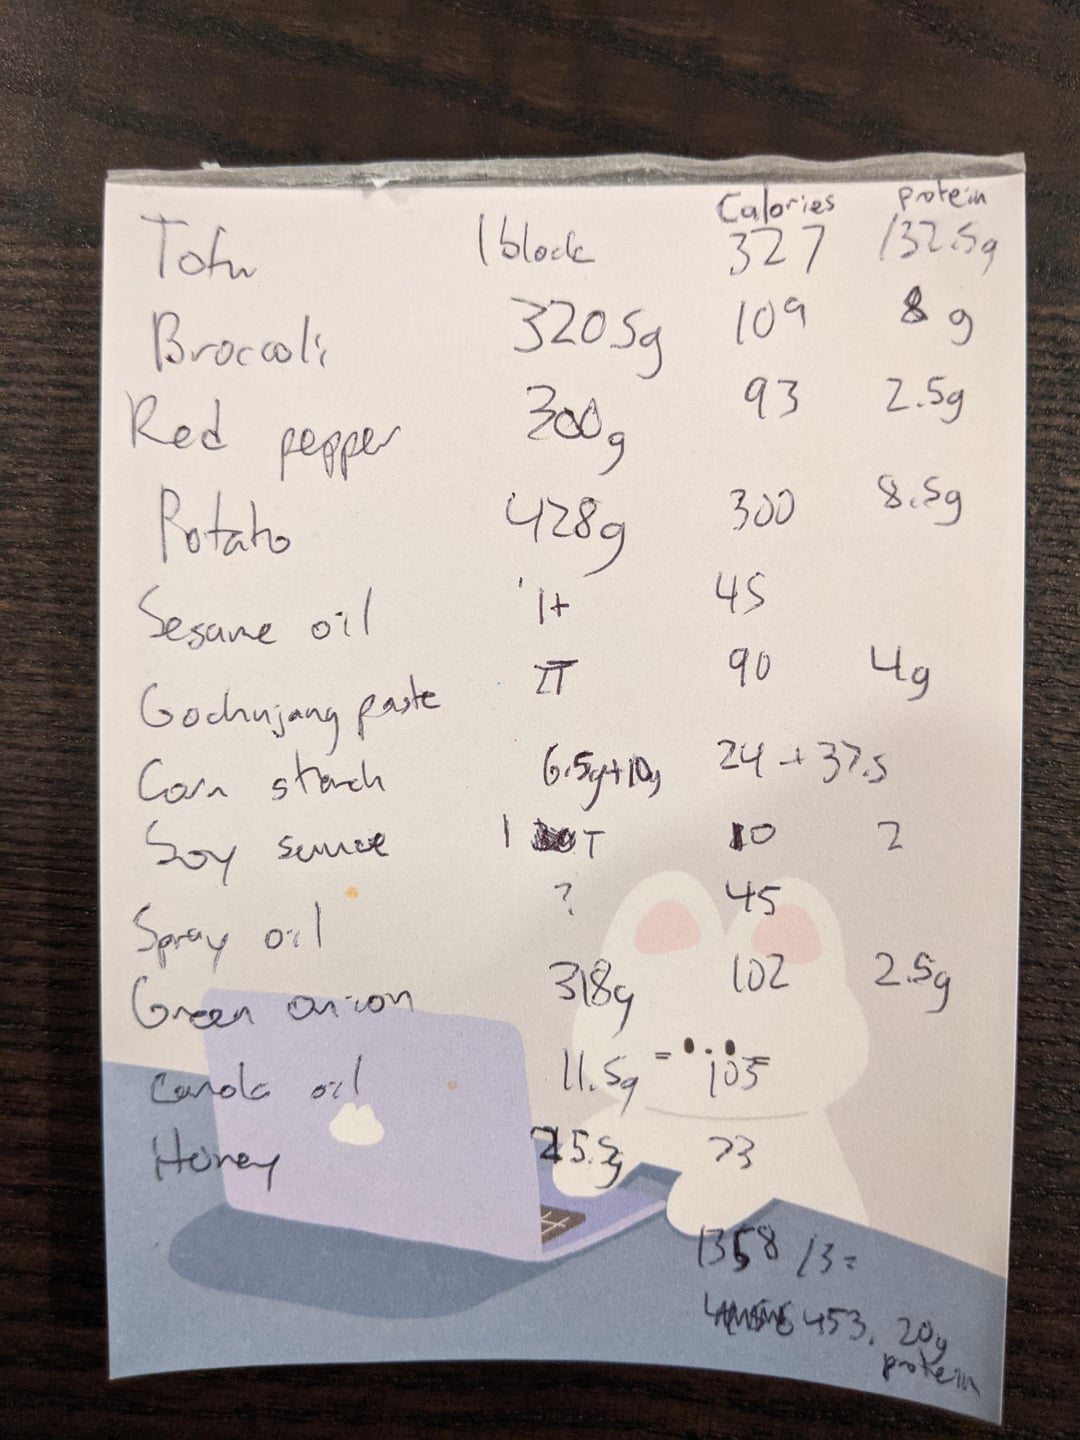 Calories protein
Tofu 1 block 327 /32.5g
Brocoli 320.5g 109 8g
Red pepper 300g 93 2.5g
Potato 428g 300 8.5g
Sesame oil 1t 45
Gochujang paste 90 4g
Corn starch 6.5g+10g 24 + 37.5
Soy sauce 1 T 10 2
Spray oil ? 45
Green onion 318g 102 2.5g
Canola oil 11.5g = 105
Honey 73
1358 /3=
453. 20g
protein